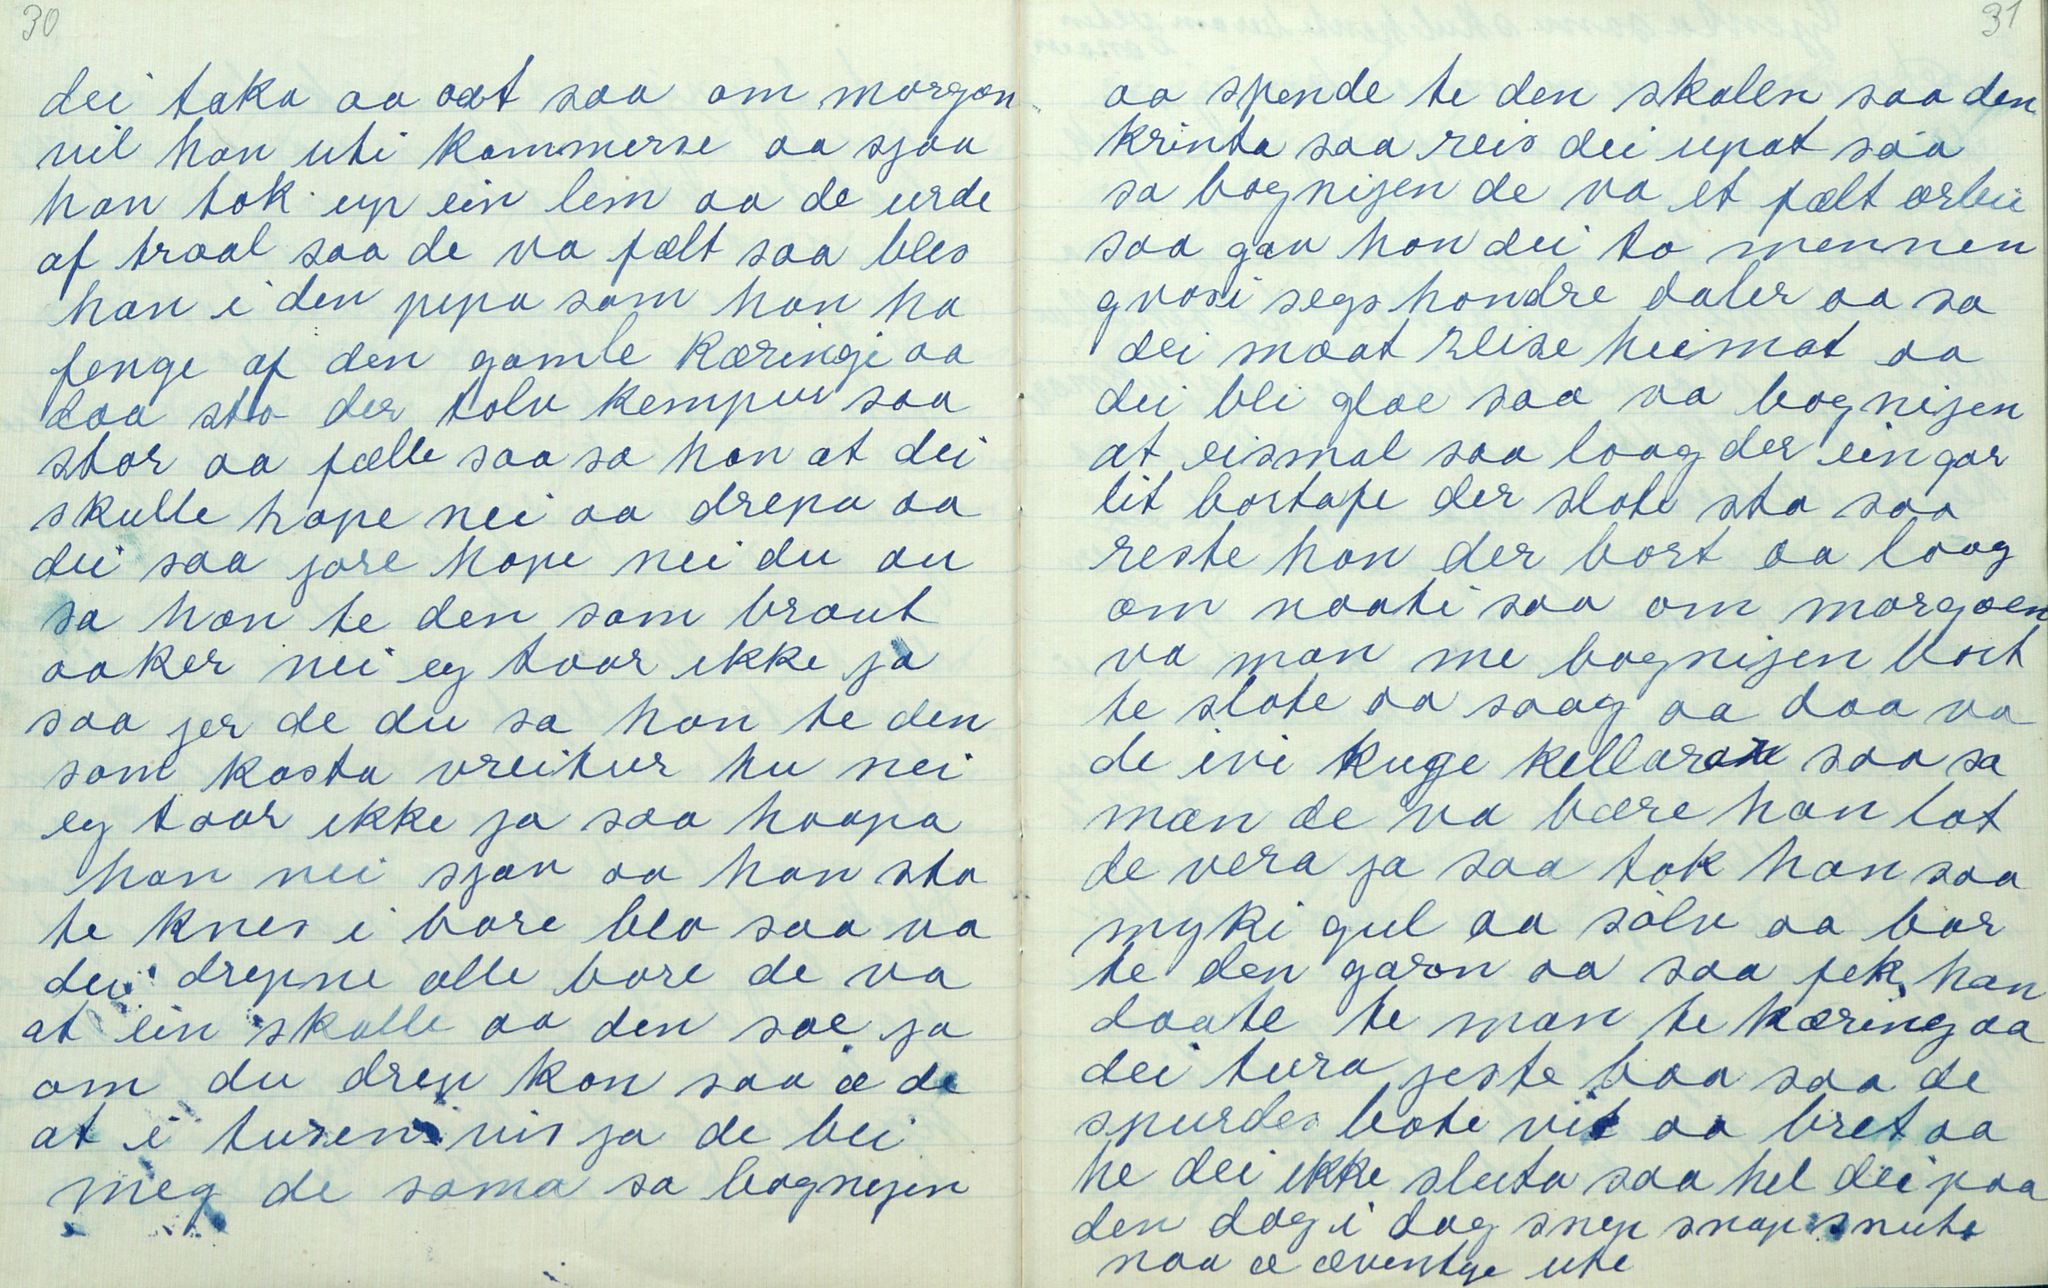 30
dei taka aa aat saa om morgon
vil han uti kammerse aa sjaa
han tok up ein lem aa de urde
af traal saa de va fælt saa bles
han i den pipa som han ha
fenge af den gamle kæringi aa
daa sto der tolv kempur saa
stor aa fælle saa sa han at dei
skulle hope nei aa drepa aa
dei saa jore hope nei du au
sa han te den som braut
aaker nei eg toor ikke ja
saa jer de du sa han te den
som kasta vreitur hu nei
eg toor ikke ja saa haapa
han nei sjav aa han sto
te knes i bare blo saa va
dei drepne alle bare de va
at ein skalle aa den sae ja
om du drep kon saa æ de
at i tusenvis ja de bli
meg de sama sa bognijen
31
aa spende te den skalen saa den
krinta saa reis dei upat saa
sa bognijen de va et fælt arbei
saa gav han dei to mennen
qvasi segs hondre daler aa sa
dei maat reise heimat aa
dei bli glae saa va bognijen
at eismal saa laag der ein gar
lit bortafe der slote sto saa
reste han der bort aa laag
om naati saa om morgoen
va man me bognijen bort
te slote aa saag aa daa va
de ivi kuge kellarane saa sa
man de va bære han lot
de vera ja saa tok han saa
myki gul aa sølv aa bar
te den garon aa saa fek han
daate te man te kæring aa
dei tura jeste baa saa de
spurdes bote vit aa bret aa
he dei ikke sluta saa hel dei paa
den dag i dag snep snap snute
naa æ æventye ute